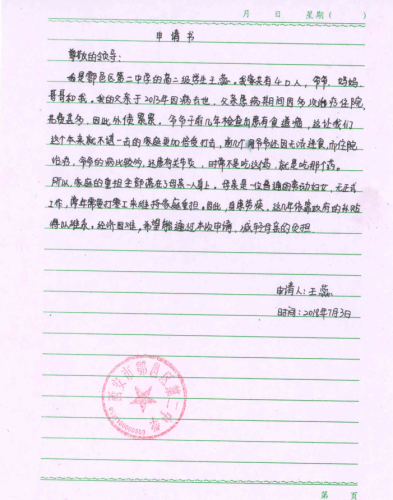 月 日 星期( )
申请书
尊敬的领导:
我是鄠邑区第二中学的高二级学生王蕊。我家共有4口人,爷爷、妈妈、
哥哥和我。我的父亲于2013年因病去世,父亲患病期间因多次治疗住院
花费甚多,因此外债累累,爷爷于前几年检查出患有食道癌,这让我们
这个本来就不堪一击的家庭更加倍受打击,前几个月爷爷还因无法进食而住院
治疗,爷爷的病比较多,还患有关节炎,时常不是吃这药,就是吃那个药。
所以,家庭的重担全部落在了母亲一人身上。母亲是一位普通的劳动妇女,无正式
工作,常年需要打零工来维持家庭重担。因此,自康劳疾,这几年依靠政府的补贴
得以继系。经济困难,希望能通过本次申请,减轻母亲的负担
申请人:王蕊
时间:2018年7月3日
西安市鄠邑区第二中学
第 页